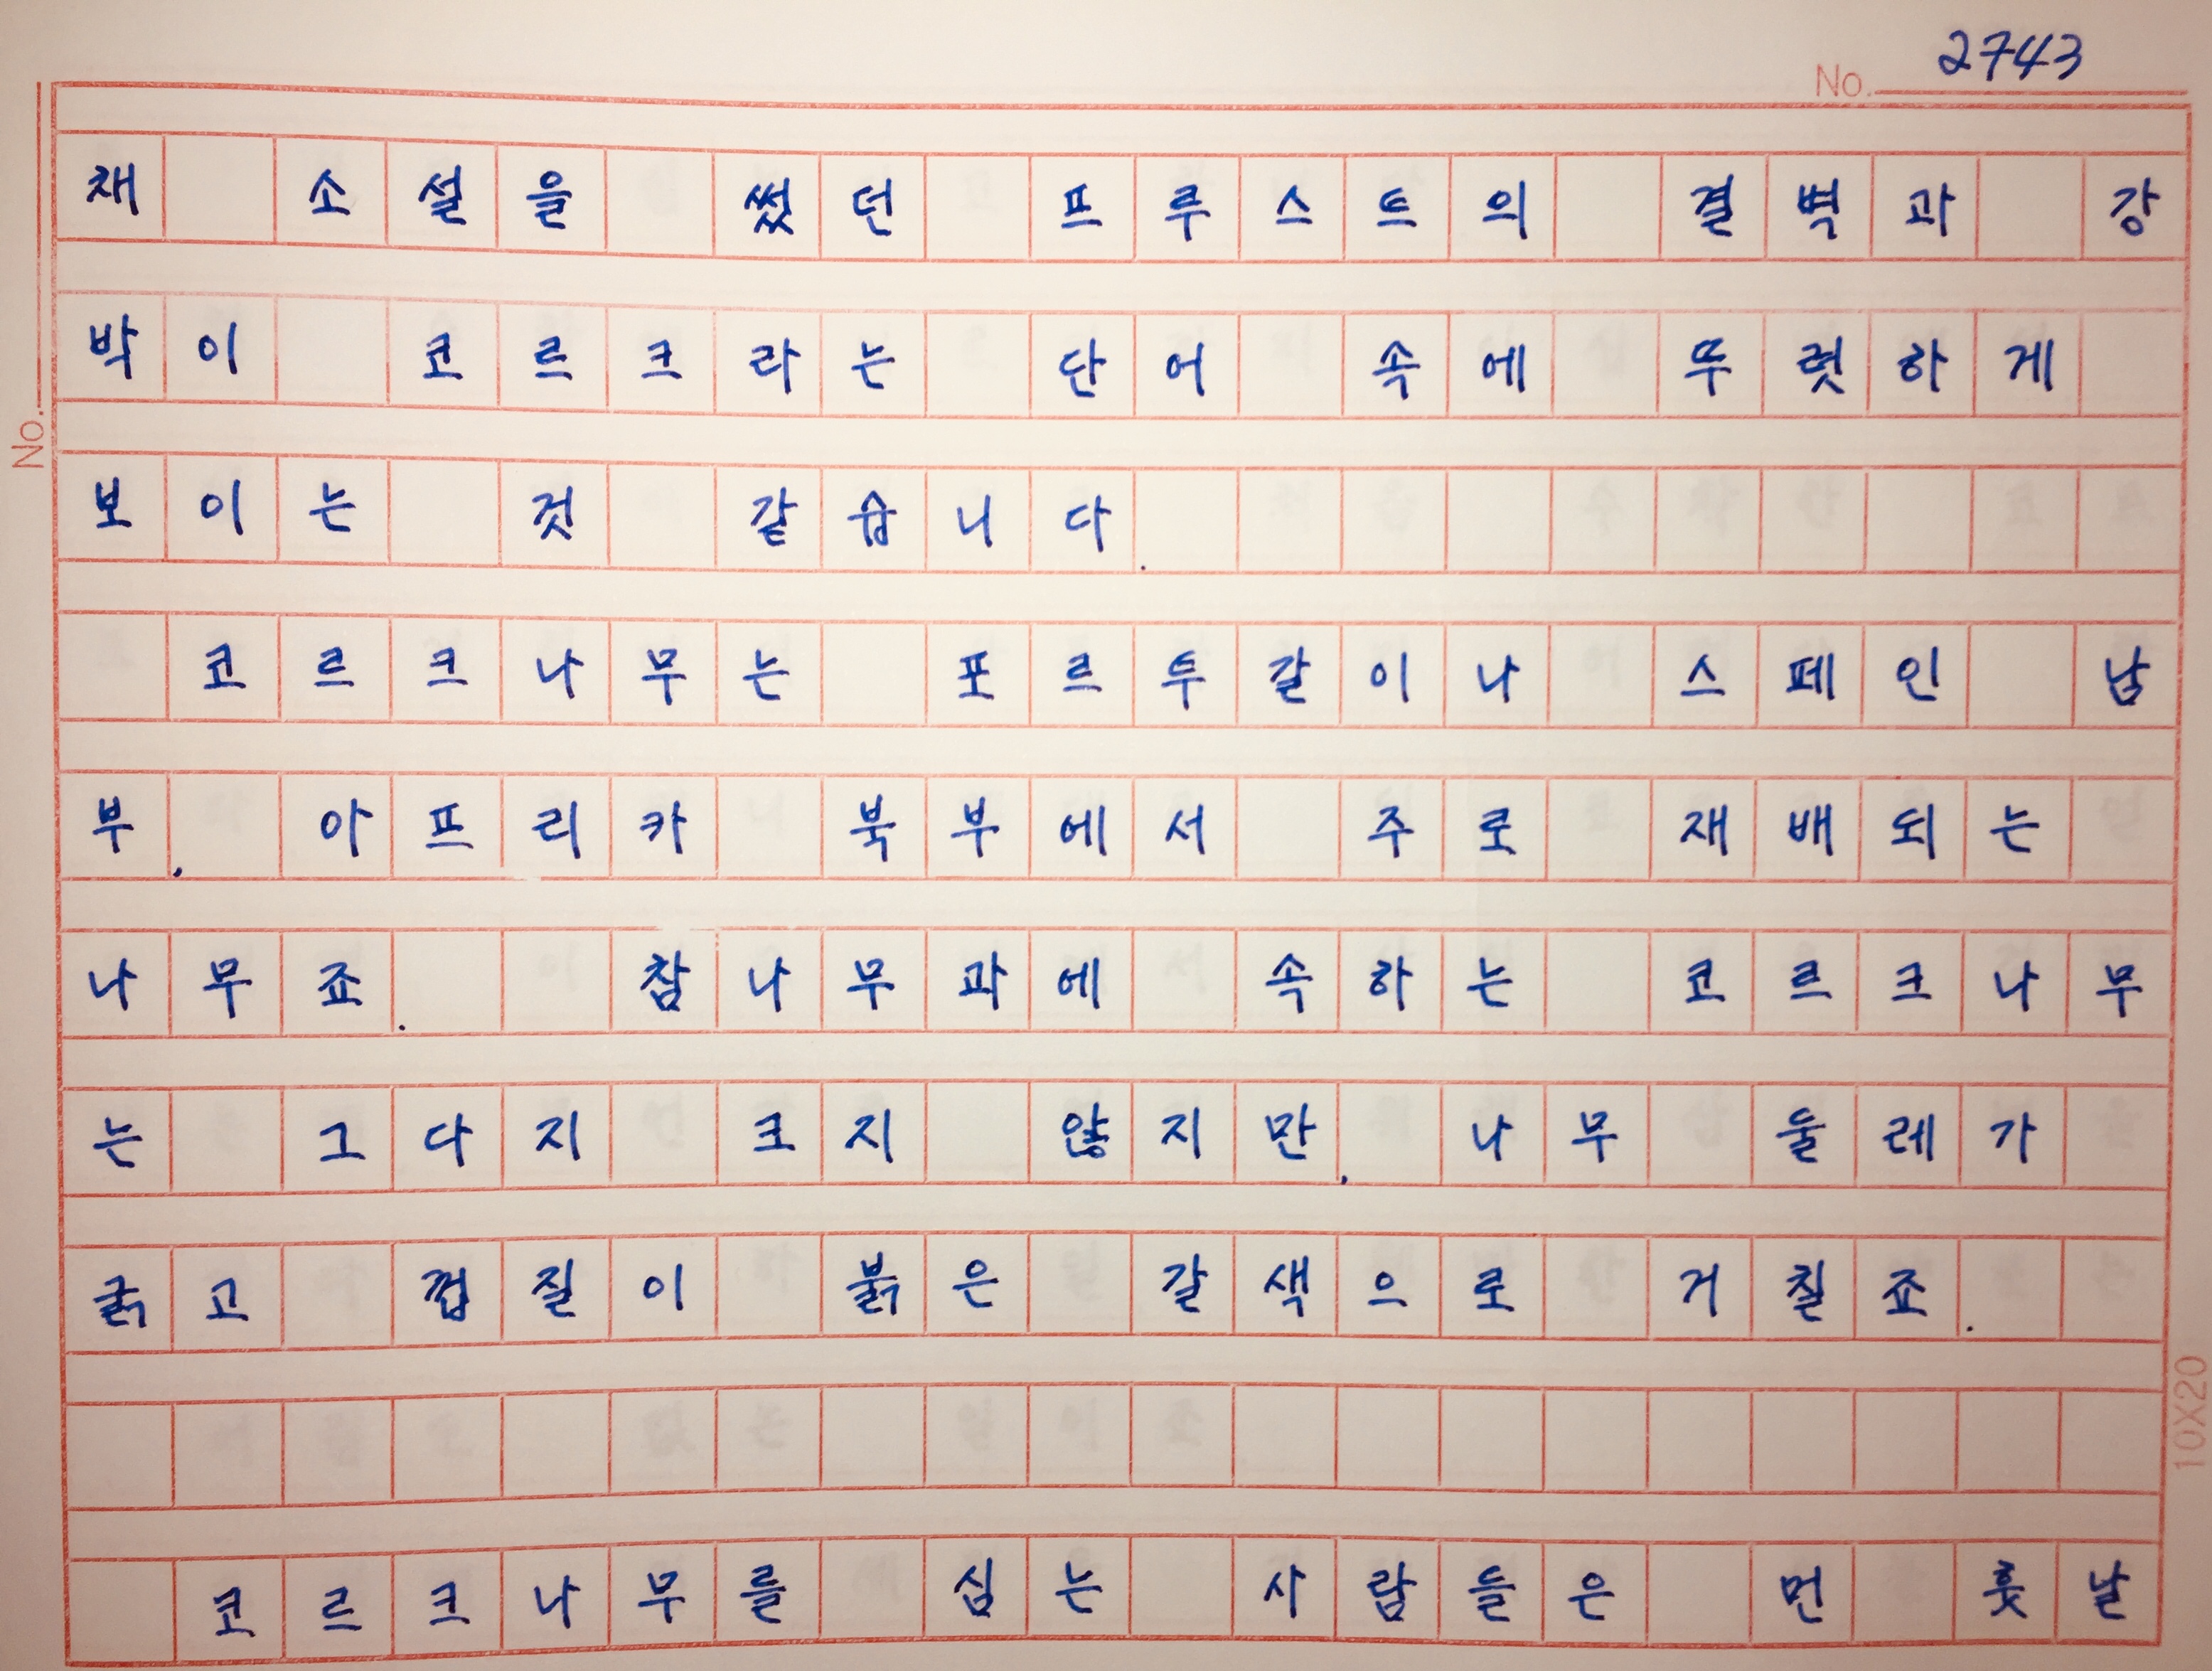 No. 2743
채 소설을 썼던 프루스트의 결벽과 강
박이 코르크라는 단어 속에 뚜렷하게
No.
보이는 것 같습니다.
코르크나무는 포르투갈이나 스페인 남
부, 아프리카 북부에서 주로 재배되는
나무죠. 참나무과에 속하는 코르크나무
는 그다지 크지 않지만, 나무 둘레가
굵고 껍질이 붉은 갈색으로 거칠죠.
10X20
코르크나무를 심는 사람들은 먼 훗날